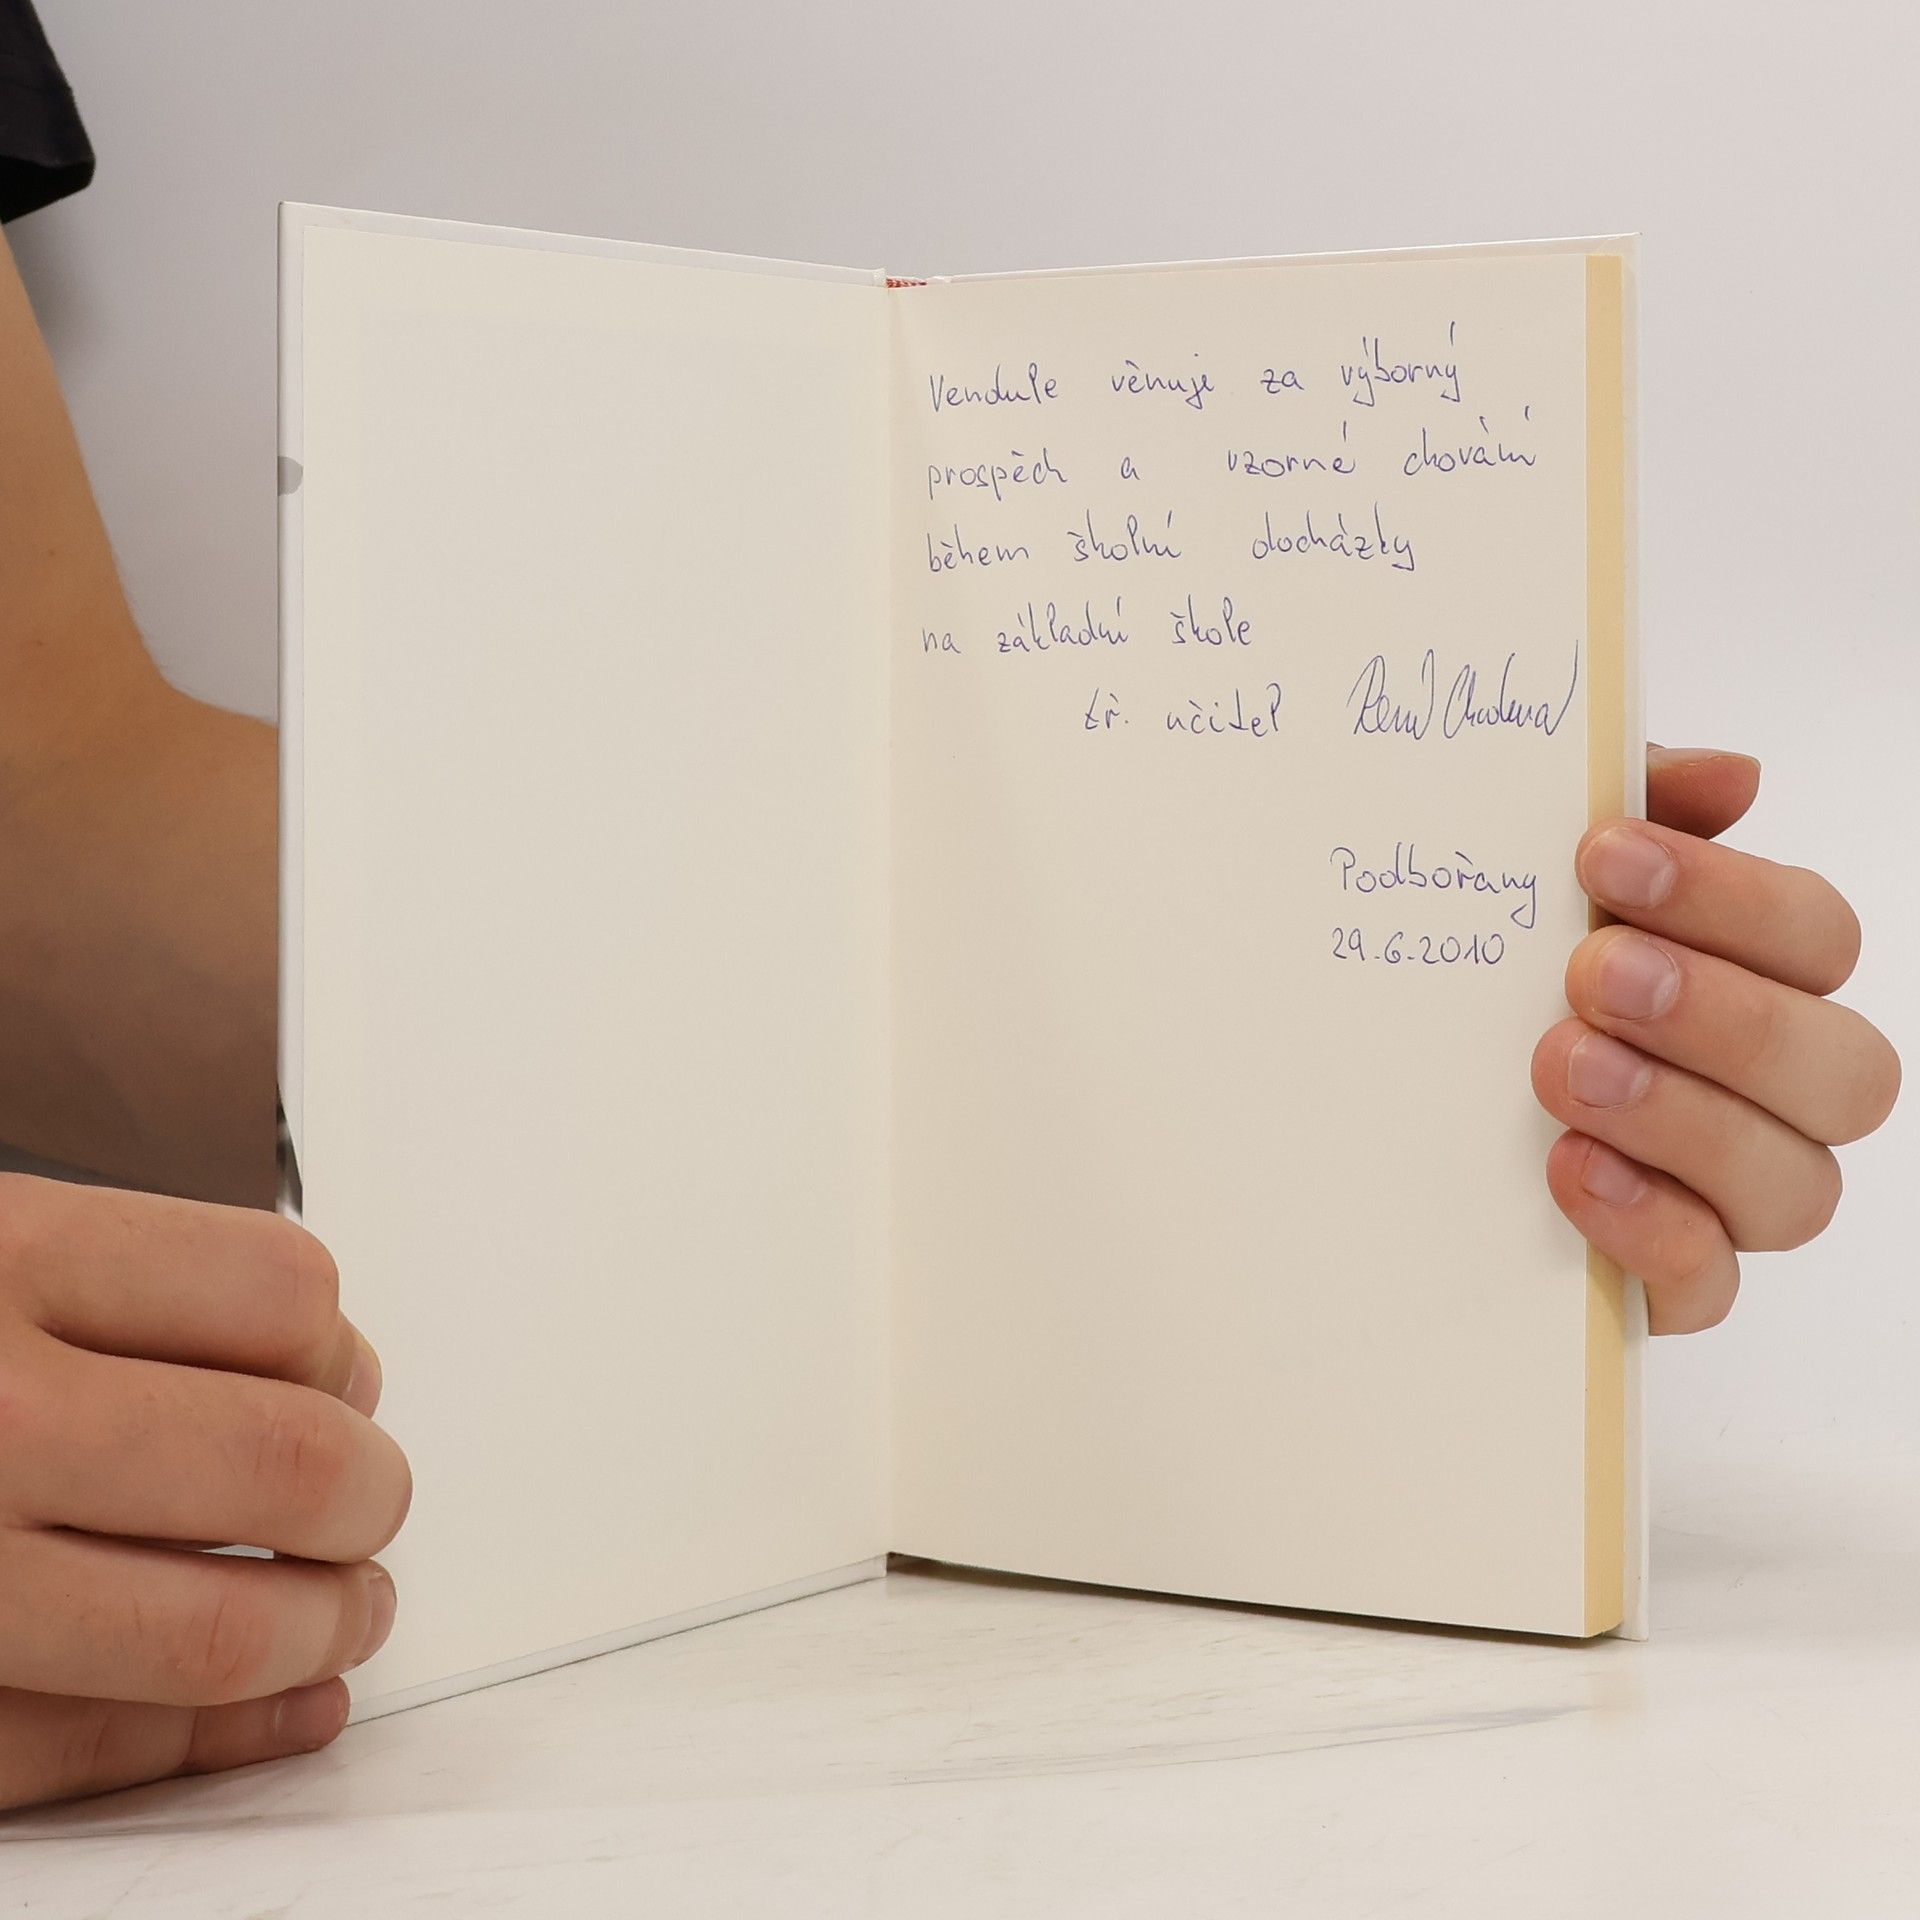 Vendule věnuje za výborný
prospěch a vzorné chování
během školní docházky
na základní škole
tř. učitel René
Podbořany
29.6.2010